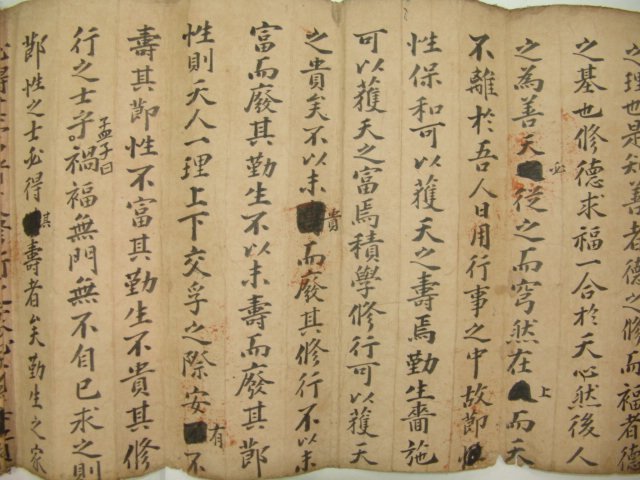 之理也是知善者德之修而福者德
之基也修德求福一合於天心然後人
之為善天必從之而穹然在上而天
不離於吾人日用行事之中故節
性保和可以獲天之壽焉勤生嗇施
可以獲天之富焉積學修行可以獲天
之貴矣不以未貴而廢其修行不以未
富而廢其勤生不以未壽而廢其節
性則天人一理上下交孚之際安有不
壽其節性不富其勤生不貴其修
行之士乎孟子曰禍福無門無不自已求之則
節性之士必得其壽者矣勤生之家